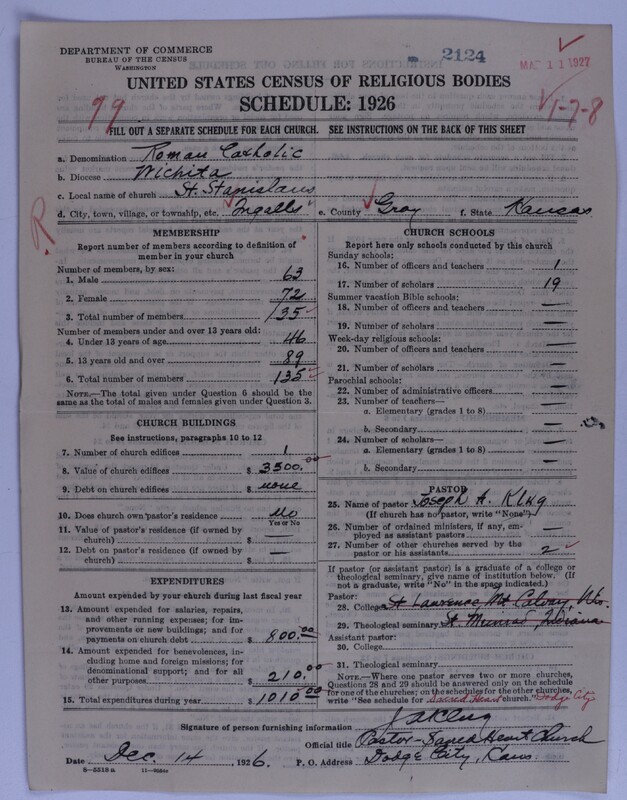 DEPARTMENT OF COMMERCE
BUREAU OF THE CENSUS
WASHINGTON
2124
MAR 11 1927
UNITED STATES CENSUS OF RELIGIOUS BODIES
SCHEDULE: 1926
79
1-7-8
FILL OUT A SEPARATE SCHEDULE FOR EACH CHURCH. SEE INSTRUCTIONS ON THE BACK OF THIS SHEET
a. Denomination Roman Catholic
b. Diocese Wichita
c. Local name of church St. Stanislaus
d. City, town, village, or township, etc. Ingalls e. County Gray f. State Kansas
R
MEMBERSHIP
Report number of members according to definition of
member in your church
Number of members, by sex:
1. Male 63
2. Female 72
3. Total number of members 135
Number of members under and over 13 years old:
4. Under 13 years of age 46
5. 13 years old and over 89
6. Total number of members 135
NOTE.—The total given under Question 6 should be the
same as the total of males and females given under Question 3.
CHURCH BUILDINGS
See instructions, paragraphs 10 to 12
7. Number of church edifices 1
8. Value of church edifices $ 3500.00
9. Debt on church edifices $ none
10. Does church own pastor's residence No
Yes or No
11. Value of pastor's residence (if owned by
church) $ —
12. Debt on pastor's residence (if owned by
church) $ —
EXPENDITURES
Amount expended by your church during last fiscal year
13. Amount expended for salaries, repairs,
and other running expenses; for im-
provements or new buildings; and for
payments on church debt $ 800.00
14. Amount expended for benevolences,
including home and foreign missions; for
denominational support; and for all
other purposes $ 210.00
15. Total expenditures during year $ 1010.00
CHURCH SCHOOLS
Report here only schools conducted by this church
Sunday schools:
16. Number of officers and teachers 1
17. Number of scholars 19
Summer vacation Bible schools:
18. Number of officers and teachers —
19. Number of scholars —
Week-day religious schools:
20. Number of officers and teachers —
21. Number of scholars —
Parochial schools:
22. Number of administrative officers —
23. Number of teachers—
a. Elementary (grades 1 to 8) —
b. Secondary —
24. Number of scholars—
a. Elementary (grades 1 to 8) —
b. Secondary —
PASTOR
25. Name of pastor Joseph A. Klug
(If church has no pastor, write "None")
26. Number of ordained ministers, if any, em-
ployed as assistant pastors —
27. Number of other churches served by the
pastor or his assistants 2
If pastor (or assistant pastor) is a graduate of a college or
theological seminary, give name of institution below. (If
not a graduate, write "No" in the space indicated.)
Pastor:
28. College St Lawrence Mt Calvary, Wis.
29. Theological seminary St. Meinrad Indiana
Assistant pastor:
30. College
31. Theological seminary
NOTE.—Where one pastor serves two or more churches,
Questions 28 and 29 should be answered only on the schedule
for one of the churches; on the schedules for the other churches,
write "See schedule for Sacred Heart church." Dodge City
Signature of person furnishing information J A Klug
Official title Pastor - Sacred Heart Church
Date Dec. 14, 1926. P. O. Address Dodge City, Kans
8—5518 a 11—9554